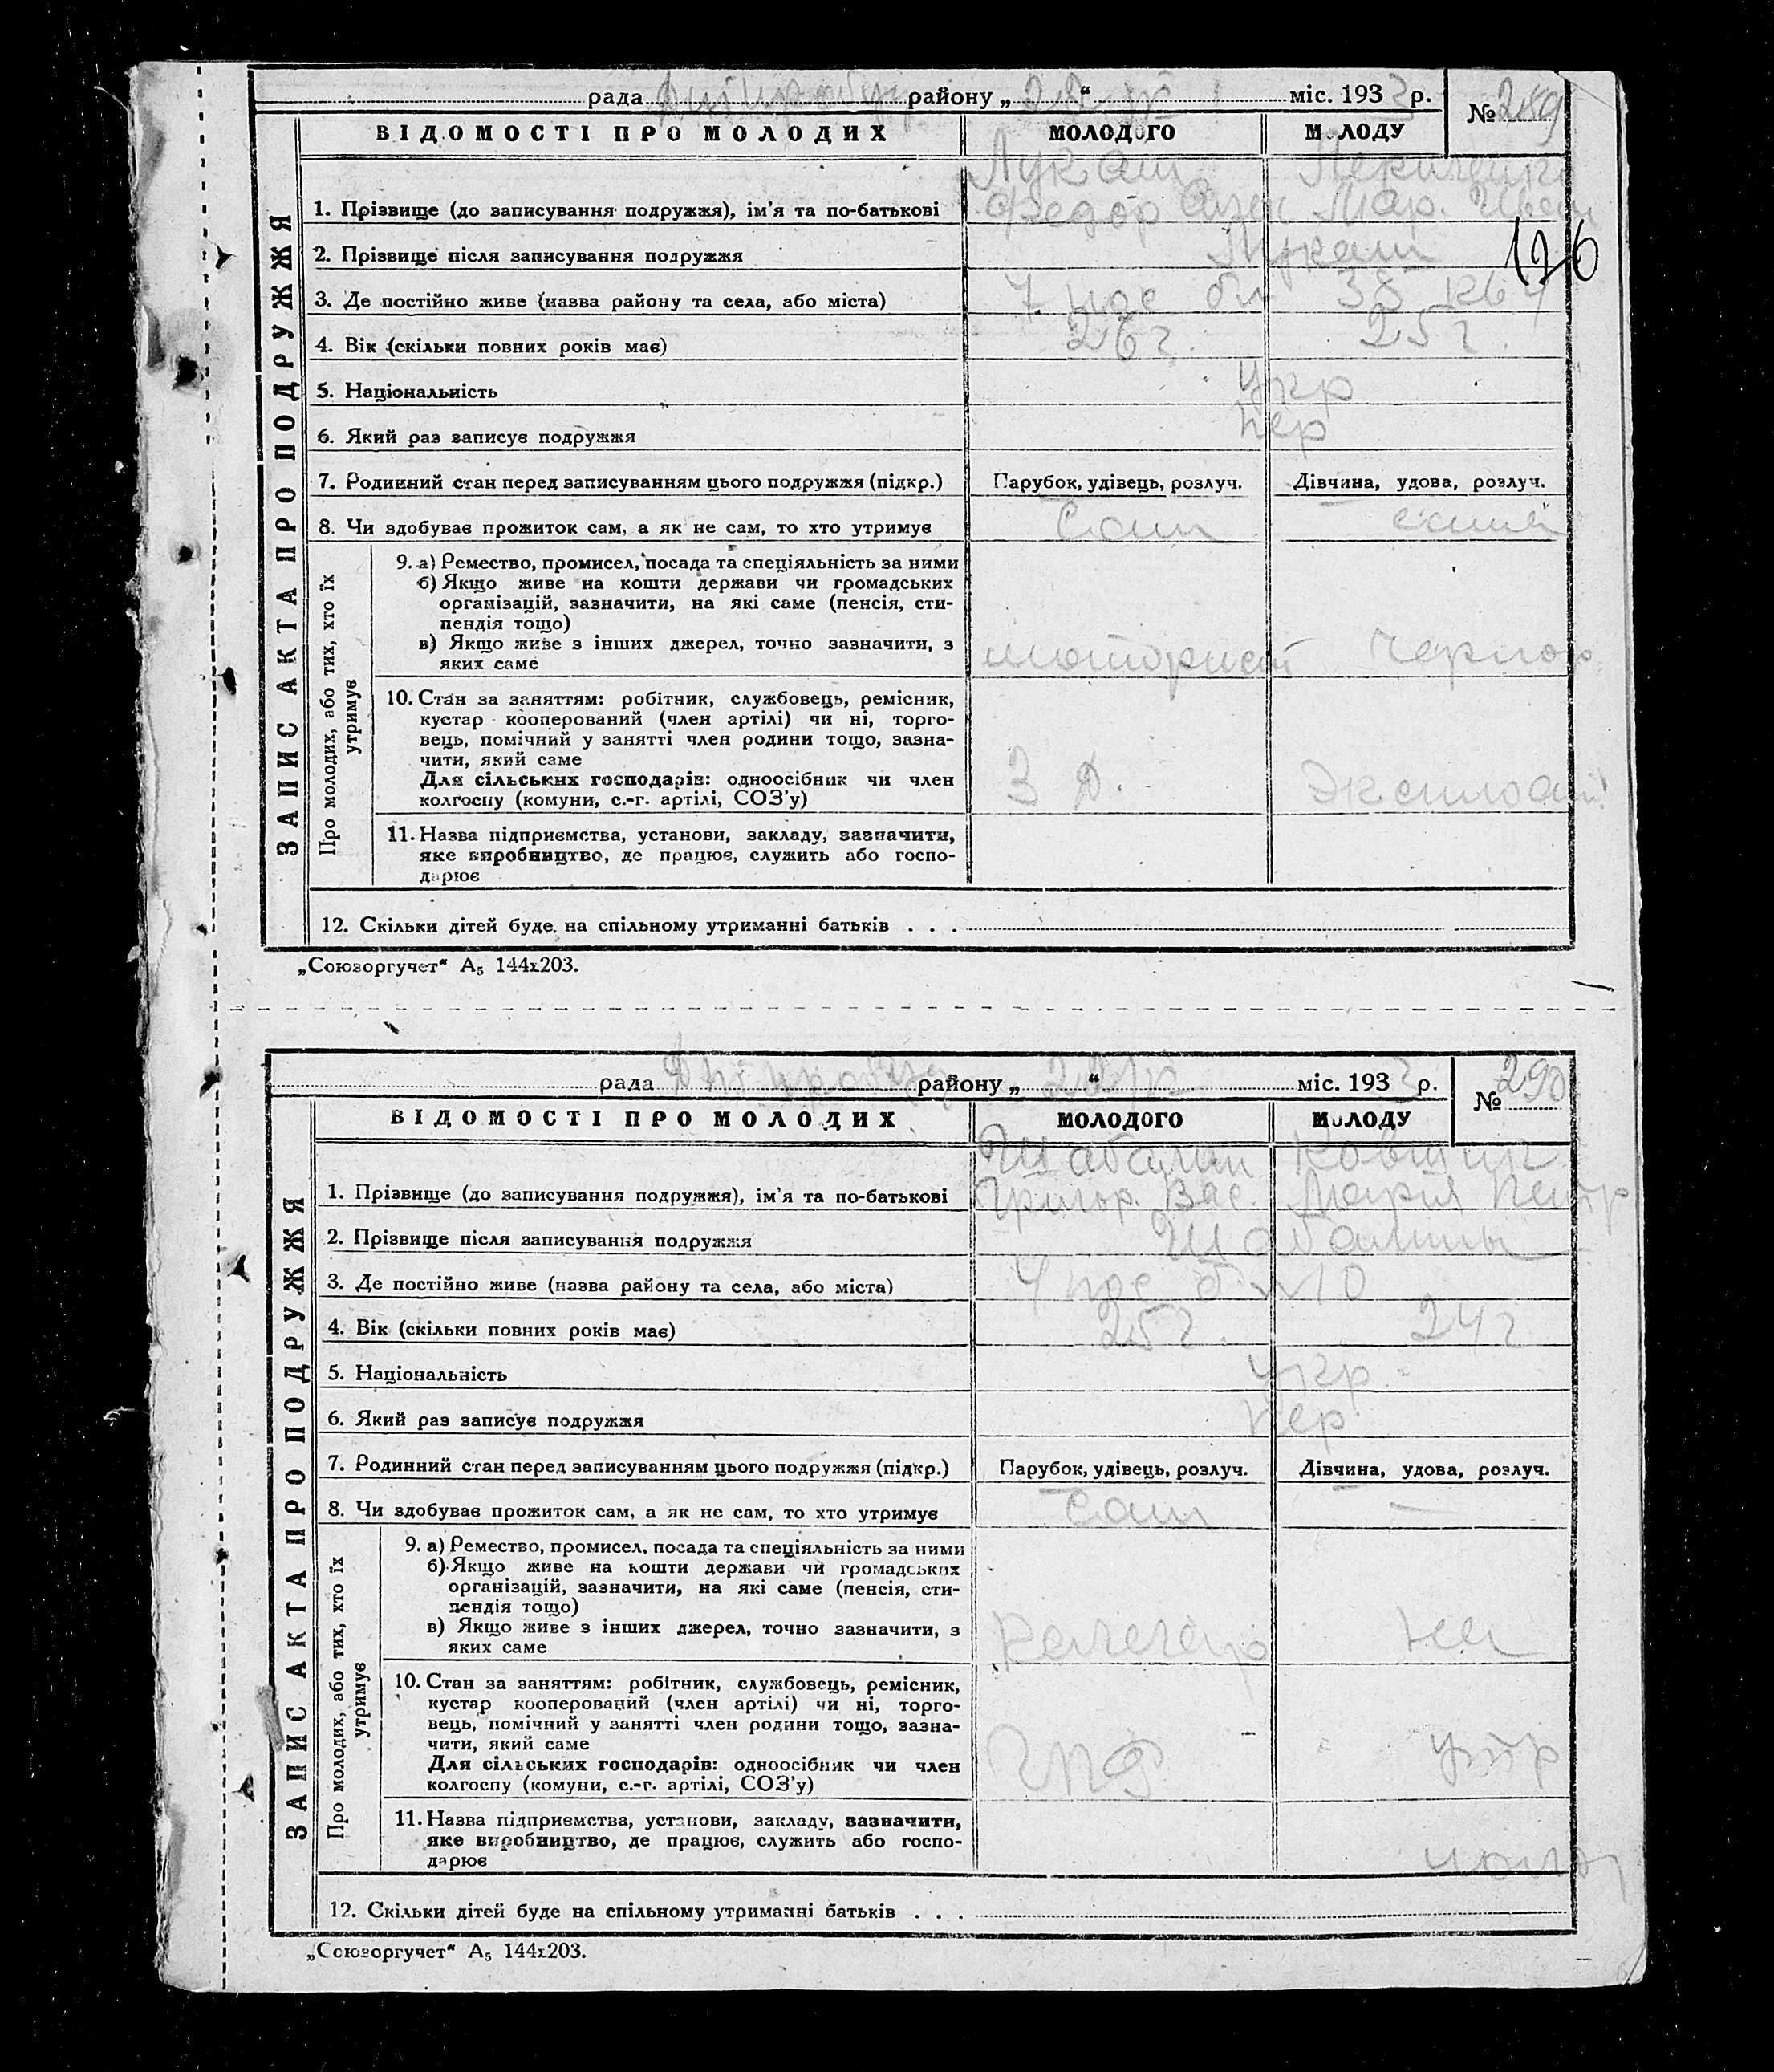 рада Дніпробуд району „ 28 " міс. 1933 р. № 289
ЗАПИС АКТА ПРО ПОДРУЖЖЯ
ВІДОМОСТІ ПРО МОЛОДИХ МОЛОДОГО МОЛОДУ
Лукаш
1. Прізвище (до записування подружжя), ім'я та по-батькові Федор Мар. Иван
2. Прізвище після записування подружжя Лукаш 126
3. Де постійно живе (назва району та села, або міста) 7 пос 38
4. Вік (скільки повних років має) 26 г. 25 г.
5. Національність Укр
6. Який раз записує подружжя пер
7. Родинний стан перед записуванням цього подружжя (підкр.) Парубок, удівець, розлуч. Дівчина, удова, розлуч.
8. Чи здобуває прожиток сам, а як не сам, то хто утримує Сам сама
Про молодих, або тих, хто їх утримує
9. а) Ремество, промисел, посада та спеціяльність за ними
б) Якщо живе на кошти держави чи громадських
організацій, зазначити, на які саме (пенсія, сти-
пендія тощо)
в) Якщо живе з інших джерел, точно зазначити, з
яких саме моторист чернор
10. Стан за заняттям: робітник, службовець, ремісник,
кустар кооперований (член артілі) чи ні, торго-
вець, помічний у занятті член родини тощо, зазна-
чити, який саме
Для сільських господарів: одноосібник чи член
колгоспу (комуни, с.-г. артілі, СОЗ'у) З Д. Эксплоат
11. Назва підприємства, установи, закладу, зазначити,
яке виробництво, де працює, служить або госпо-
дарює
12. Скільки дітей буде на спільному утриманні батьків . . .
„Союзоргучет" А5 144х203.
рада Дніпробуд району „ 28 " міс. 1933 р. № 290
ЗАПИС АКТА ПРО ПОДРУЖЖЯ
ВІДОМОСТІ ПРО МОЛОДИХ МОЛОДОГО МОЛОДУ
Шабалин
1. Прізвище (до записування подружжя), ім'я та по-батькові Григор. Вас. Марія Петр
2. Прізвище після записування подружжя Шабалины
3. Де постійно живе (назва району та села, або міста) 4 пос 10
4. Вік (скільки повних років має) 25 г. 24 г
5. Національність укр
6. Який раз записує подружжя пер
7. Родинний стан перед записуванням цього подружжя (підкр.) Парубок, удівець, розлуч. Дівчина, удова, розлуч.
8. Чи здобуває прожиток сам, а як не сам, то хто утримує сам —
Про молодих, або тих, хто їх утримує
9. а) Ремество, промисел, посада та спеціяльність за ними
б) Якщо живе на кошти держави чи громадських
організацій, зазначити, на які саме (пенсія, сти-
пендія тощо)
в) Якщо живе з інших джерел, точно зазначити, з
яких саме на
10. Стан за заняттям: робітник, службовець, ремісник,
кустар кооперований (член артілі) чи ні, торго-
вець, помічний у занятті член родини тощо, зазна-
чити, який саме
Для сільських господарів: одноосібник чи член
колгоспу (комуни, с.-г. артілі, СОЗ'у) утр
11. Назва підприємства, установи, закладу, зазначити,
яке виробництво, де працює, служить або госпо-
дарює
12. Скільки дітей буде на спільному утриманні батьків . . .
„Союзоргучет" А5 144х203.